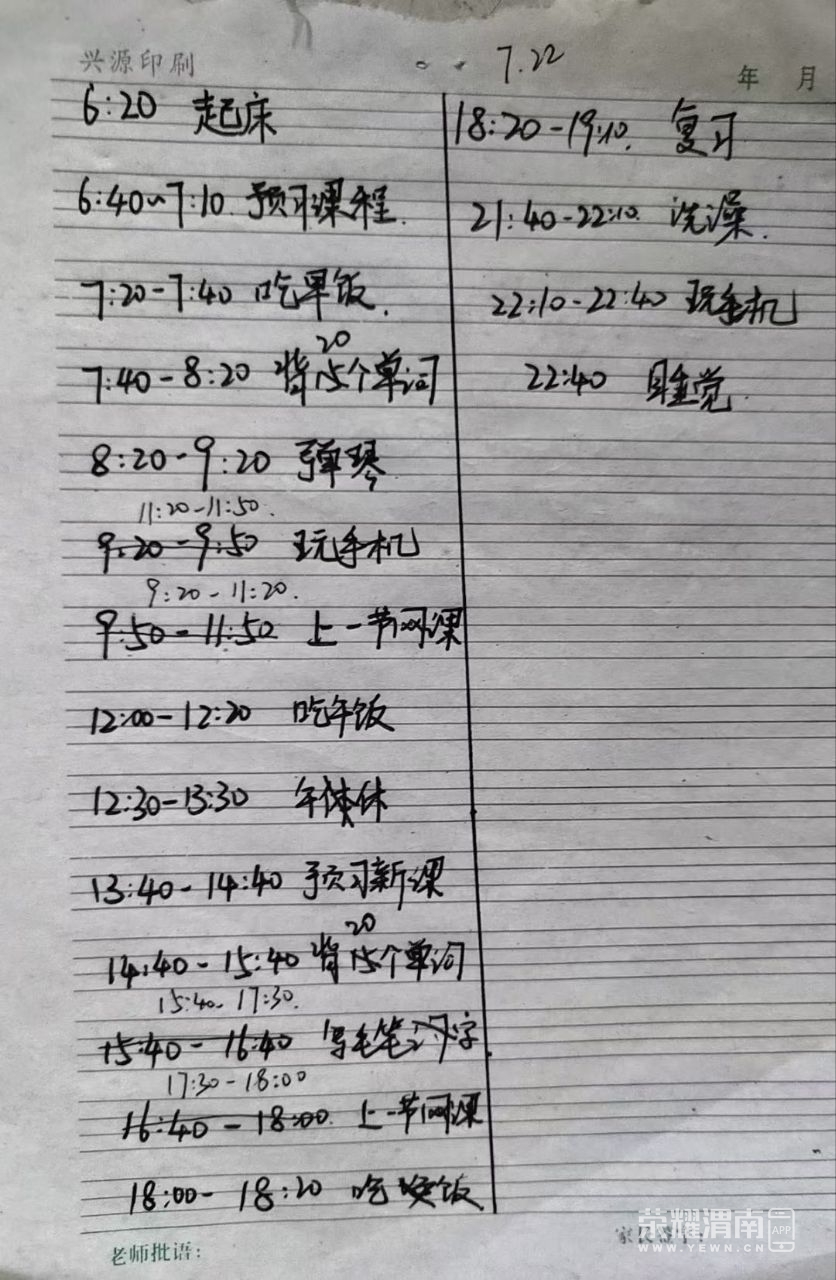 兴源印刷
7.22
年 月
6:20 起床
6:40~7:10 预习课程.
7:20-7:40 吃早饭.
20
7:40-8:20 背15个单词
8:20-9:20 弹琴
11:20-11:50.
9:20-9:50 玩手机
9:20-11:20.
9:50-11:50 上一节网课
12:00-12:20 吃午饭
12:30-13:30 午休
13:40-14:40 预习新课
20
14:40-15:40 背15个单词
15:40-17:30.
15:40-16:40 写毛笔字
17:30-18:00
16:40-18:00. 上一节网课
18:00-18:20 吃晚饭
18:20-19:10. 复习
21:40-22:10. 洗澡.
22:10-22:40 玩手机
22:40 睡觉.
老师批语:
荣耀渭南 APP
WWW.YEWN.CN